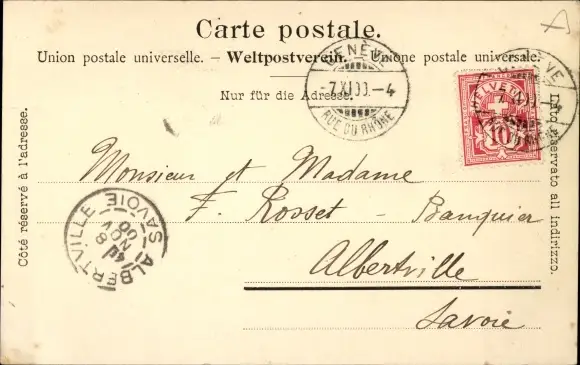 A
Carte postale.
Union postale universelle. – Weltpostverein. – Unione postale universale.
Nur für die Adresse.
GENÈVE
-7.XI.00.-4
RUE DU RHÔNE
GENÈVE
HELVETIA
10
Côté réservé à l'adresse.
Lato riservato all indirizzo.
Monsieur et Madame
F. Rosset - Banquier
Albertville
Savoie
ALBERTVILLE
8
NOV
00
SAVOIE